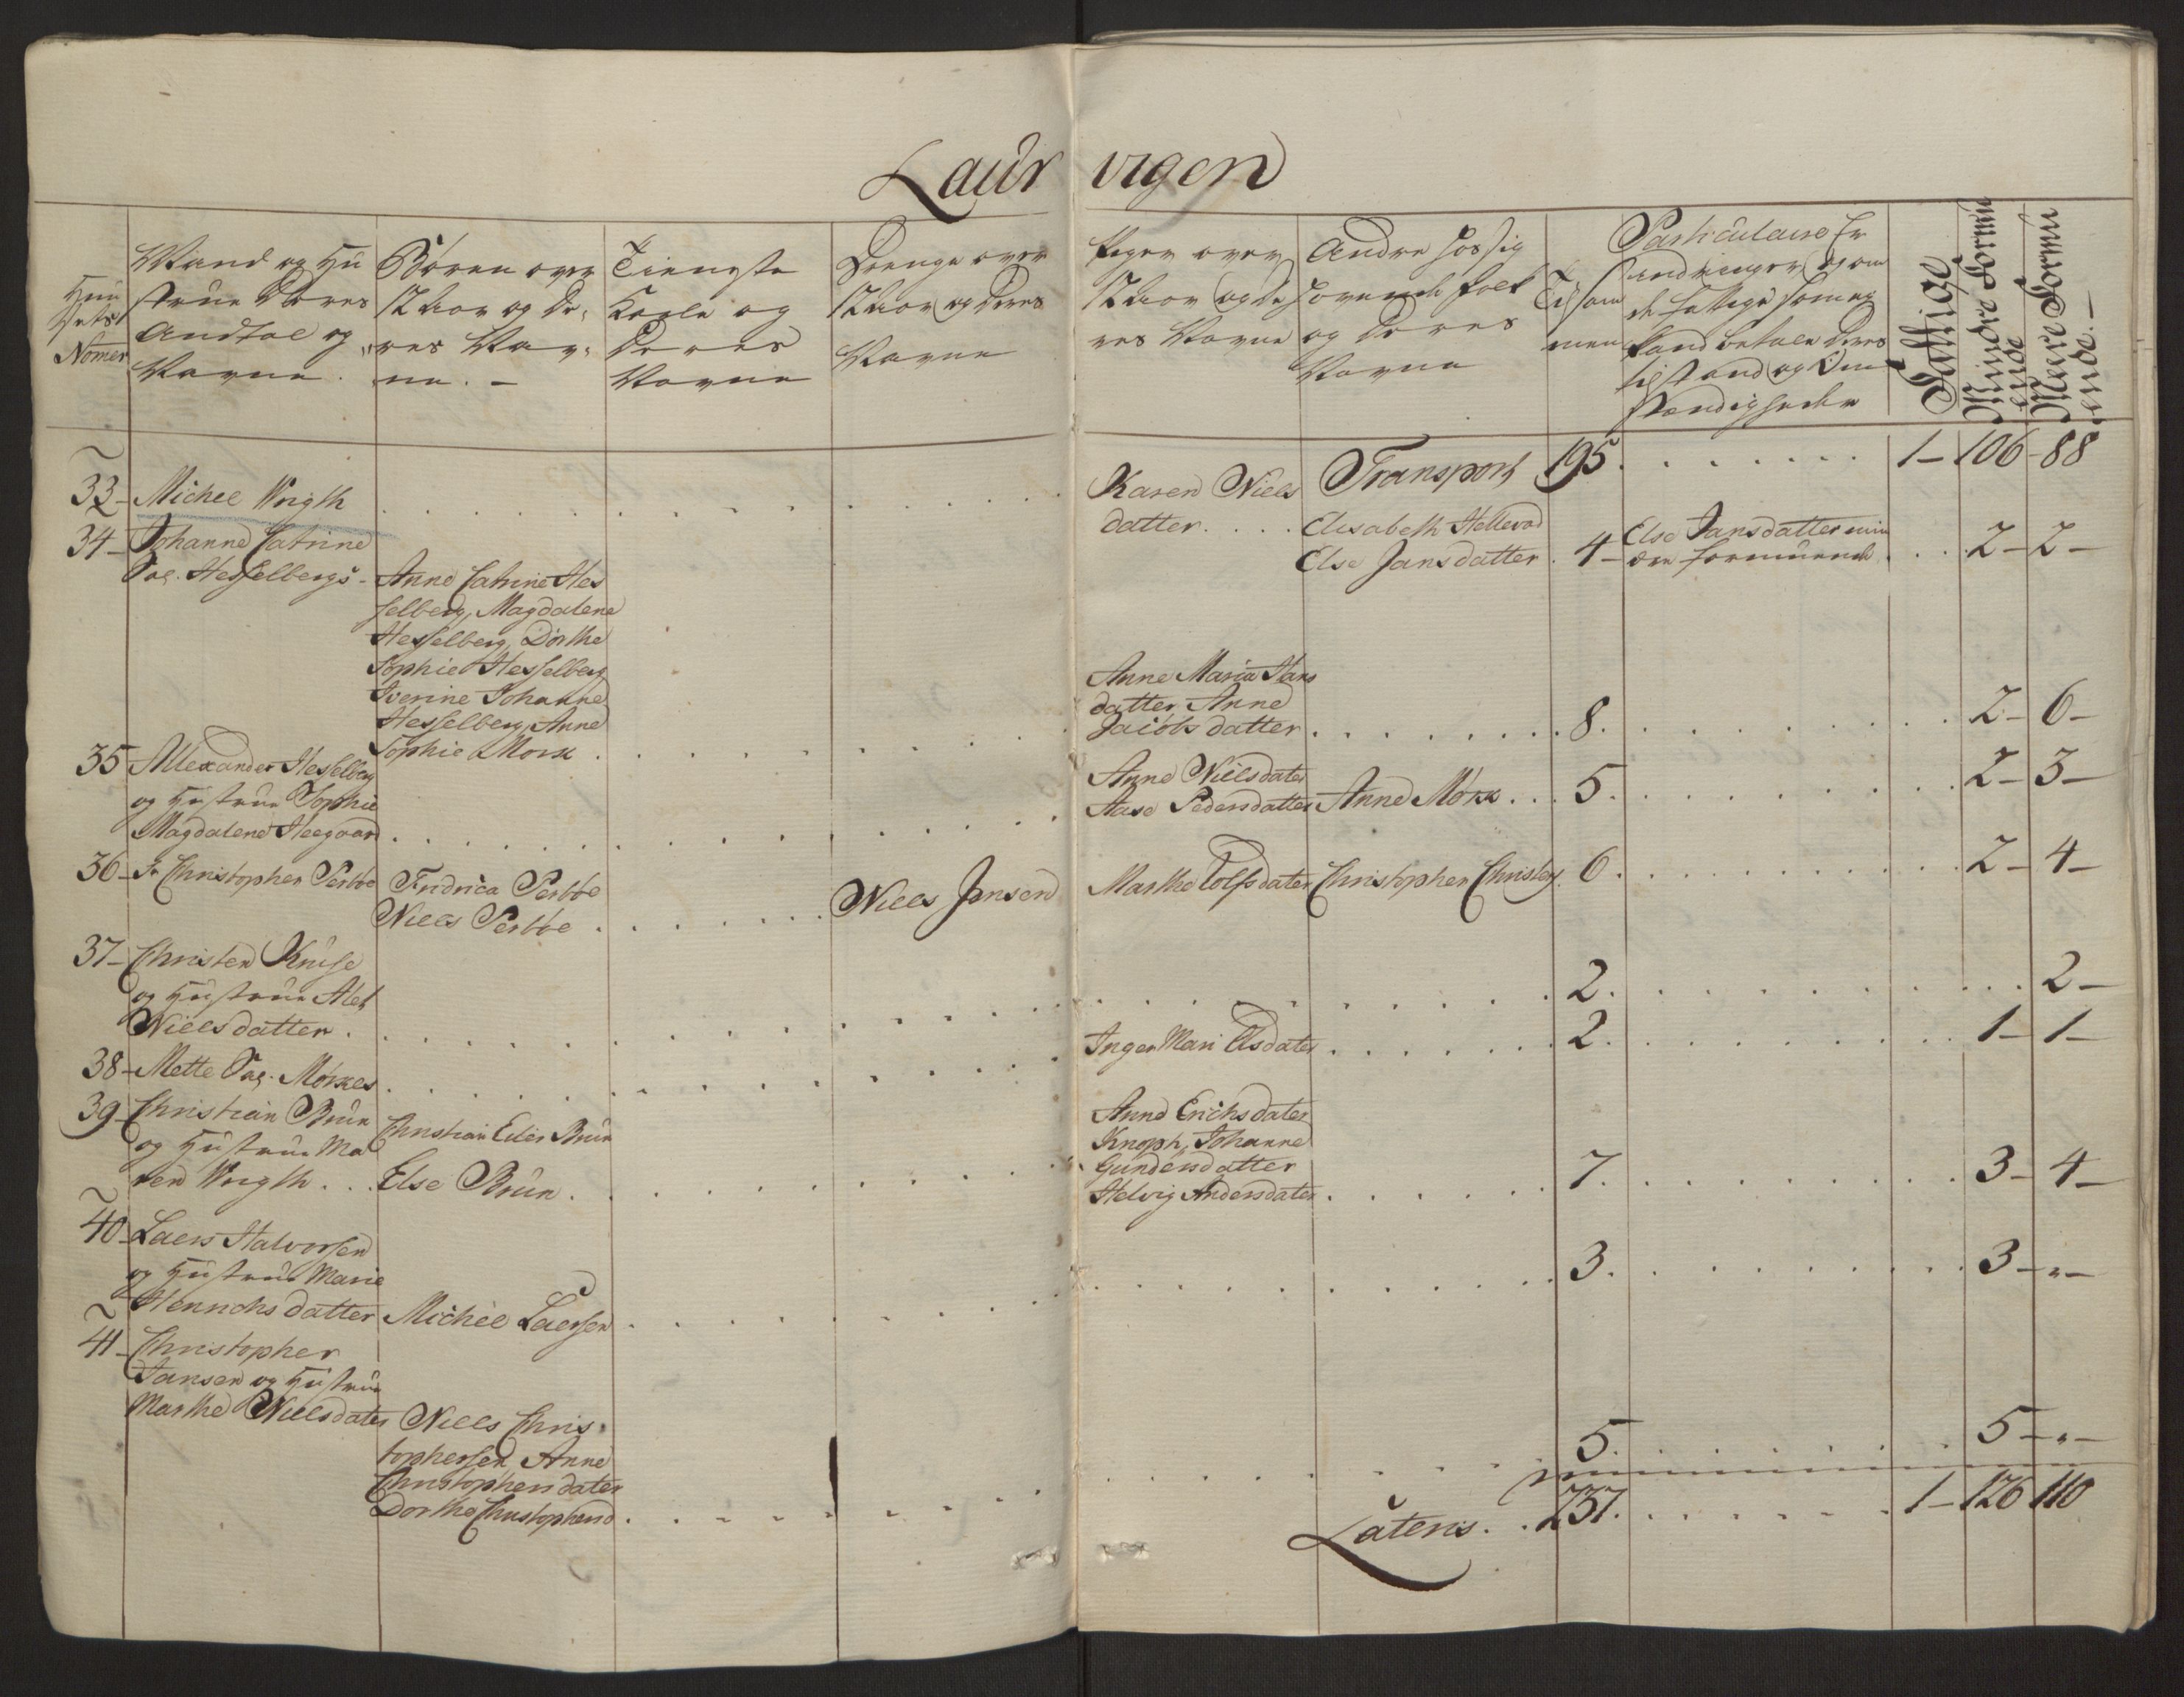 Laur vigen
Huu
sets
Nomer
Mand og Hu
strue Deres
Andtal og
Navne.
Børen over
12 Aar og De,
res Nav,
ne. –
Tieneste
Karle og
Deres
Navne
Drenge over
12 Aar og Deres
Navne
Piger over
12 Aar og De
res Navne
Andre hos sig
havende folk
og Deres
Navne
Til sam
men
Particulaire Er
indringer og om
de fattige som ey
kand betale Deres
tilstand og Om
stændigheder
Fattige
Mindre Formu
ende
Mere Formu
ende. –
Transport 195 . . . . . . . 1– 106 – 88
33– Michel Wrigth . . . . . . . . . . . .
Karen Niels
datter. . . . Elisabeth Hellerød
Else Jansdatter . 4–
Else Jansdatter min
dre formuende . . . 2– 2–
34– Johanne Catrine
Sal. Hesselbergs –
Anne Catrine Hes
selberg, Magdalene
Hesselberg, Dorthe
Sophie Hesselberg
Iverine Johanne
Hesselberg, Anne
Sophie Mørk . . . . . . . . .
Anne Maria Hans
datter, Anne
Jacobs datter . . . . . . . . 8. . . . . . . . 2– 6–
35 Allexander Hesselberg
og Hustrue Sophie
Magdalene Heegaard . . . . . . . . . . . .
Anne Nielsdater
Aase Pedersdatter Anne Mørk . . . 5. . . . . . . . 2– 3–
36– Sr Christopher Perboe
Fridrica Perboe
Niels Perboe . . . . . . . Niels Jensen
Marthe Tolfsdater Christopher Christ 6. . . . . . . . 2– 4–
37– Christen Kruse
og Hustrue Alet
Nielsdatter . . . . . . . . . . . . .
2. . . . . . . . . . 2–
38– Mette Sal. Mørkes . . . . . . . . . . . .
Inger Mari Elsdater . . . . . . 2. . . . . . . . 1– 1–
39– Christian Brun
og Hustrue Ma
ren Wrigth . . .
Christian Eiler Brun
Else Brun . . . . . . . . . .
Anne Erichsdater
Knoph, Johanne
Gundersdatter
Helvig Andersdater . . . . . . 7. . . . . . . . 3– 4–
40– Laers Halvorsen
og Hustrue Marie
Henrichs datter Michel Laersen . . . . . . . . .
3. . . . . . . . 3– „–
41– Christopher
Jansen og Hustrue
Marthe Nielsdater
Niels Chris,
tophersen Anne
Christophersdater
Dorthe Christophersd . . . . . . . . .
5. . . . . . . . 5– „–
Lateris . . 237. . . . . . . 1– 126 110